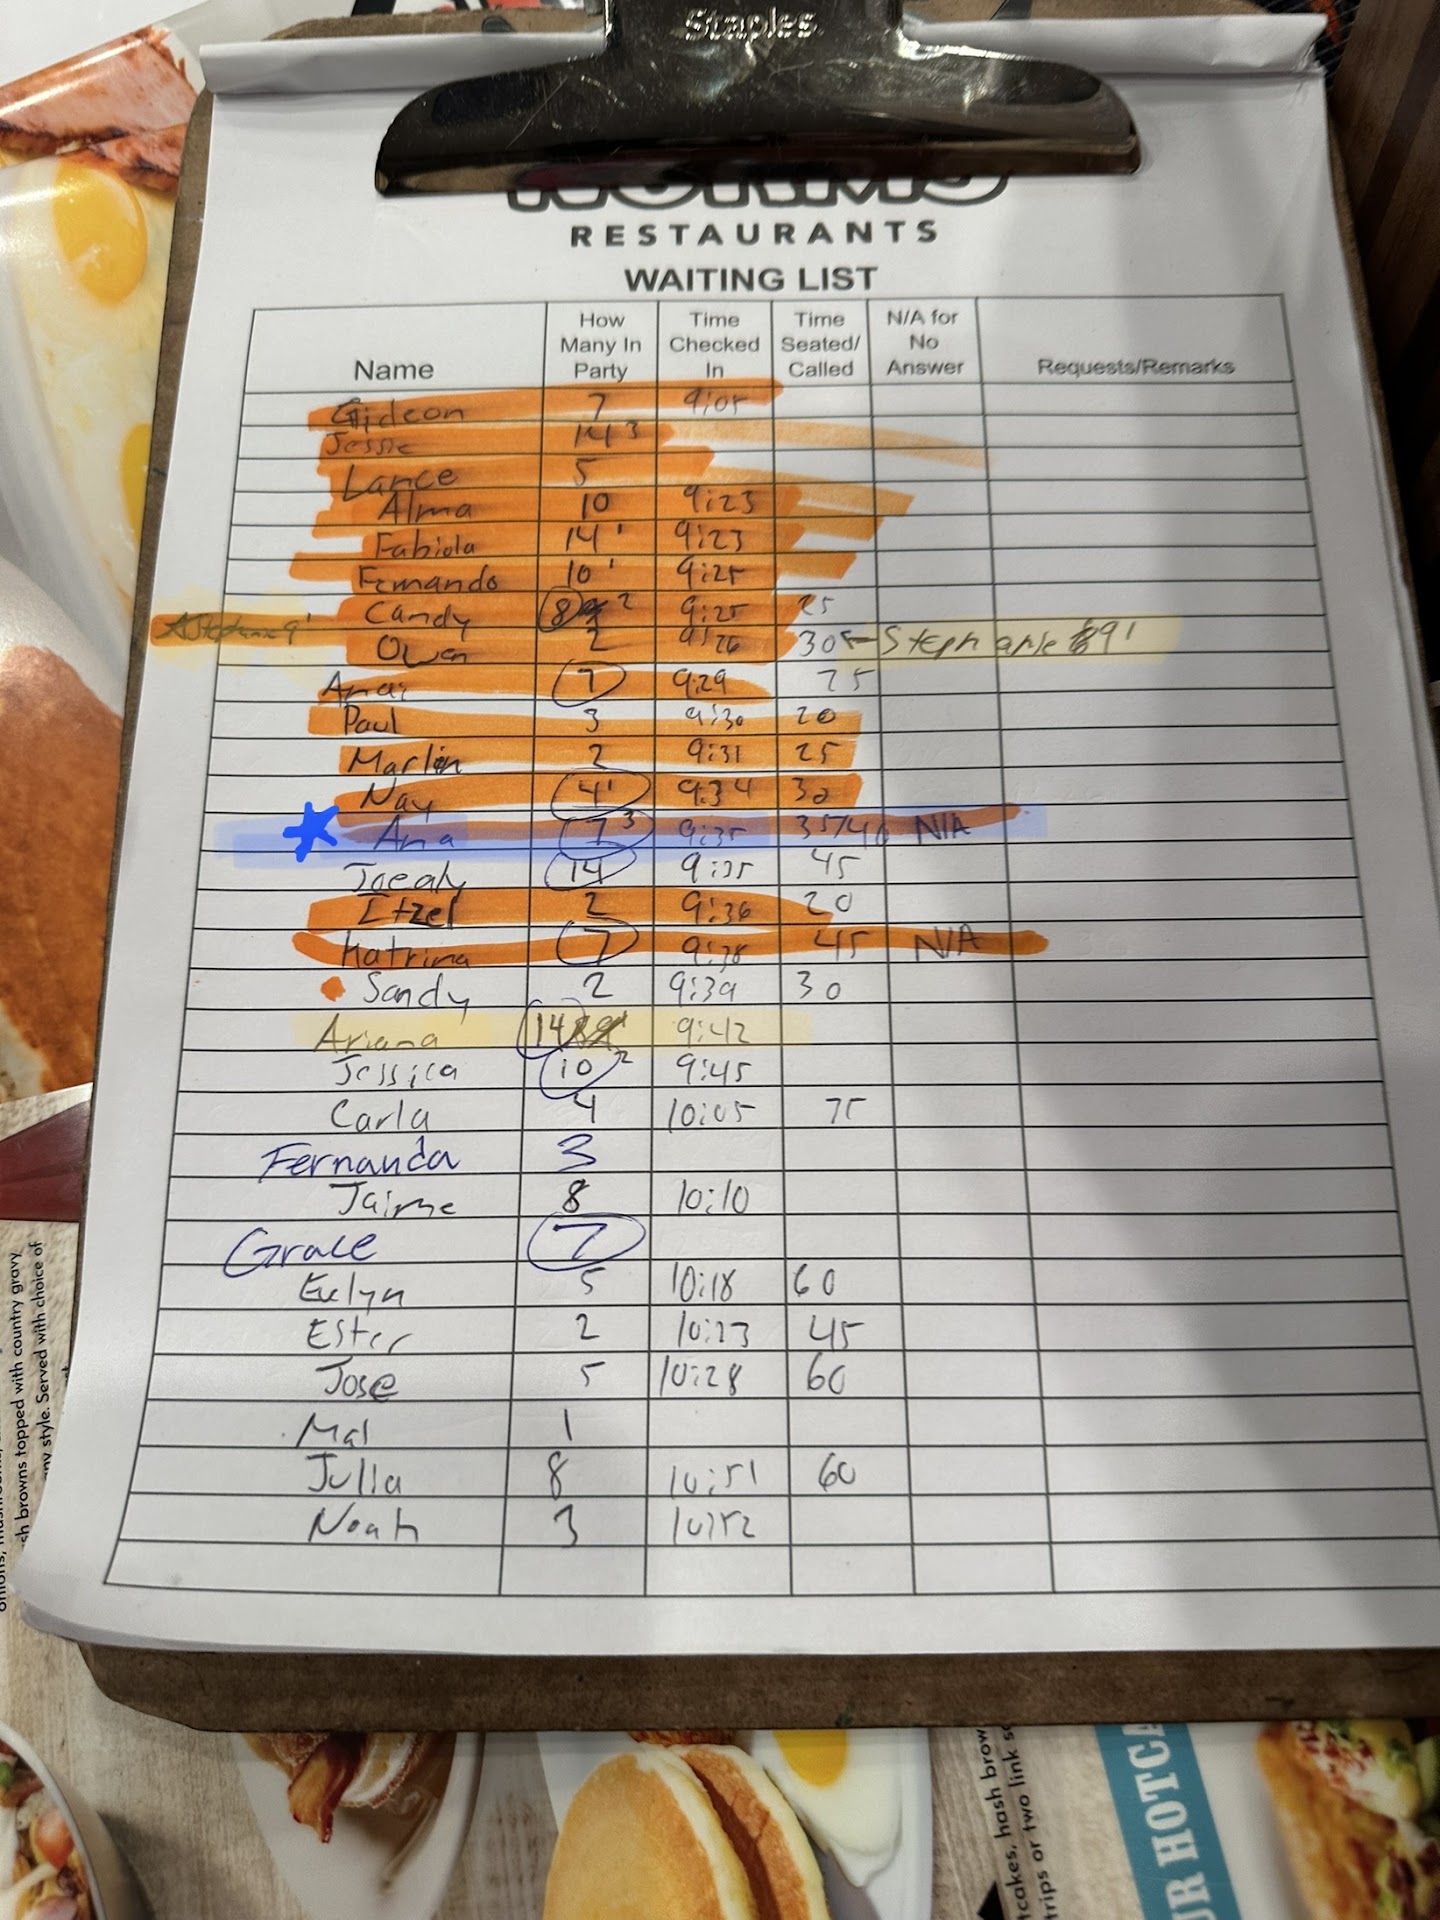 Staples
NORMS
RESTAURANTS
WAITING LIST
Name How Many In Party Time Checked In Time Seated/Called N/A for No Answer Requests/Remarks
Gideon 7 9:05
Jessie 14 3
Lance 5
Alma 10 9:23
Fabiola 14 1 9:23
Fernando 10 1 9:25
Candy 8 2 9:25 25
Stephanie 9 1
Owen 2 9:26 305 ← Stephanie 9 1
Anai 7 9:29 25
Paul 3 9:30 20
Marlin 2 9:31 25
Nay 4 1 9:34 30
Ana 7 3 9:35 35/40 N/A
Joealy 14 9:35 45
Itzel 2 9:36 20
Katrina 7 9:38 45 N/A
Sandy 2 9:39 30
Ariana 14 9:42
Jessica 10 2 9:45
Carla 4 10:05 75
Fernanda 3
Jaime 8 10:10
Grace 7
Evelyn 5 10:18 60
Ester 2 10:23 45
Jose 5 10:28 60
Mal 1
Julia 8 10:51 60
Noah 3 10:52
sh browns topped with country gravy
any style. Served with choice of
tcakes, hash brow
trips or two link s
UR HOTCA